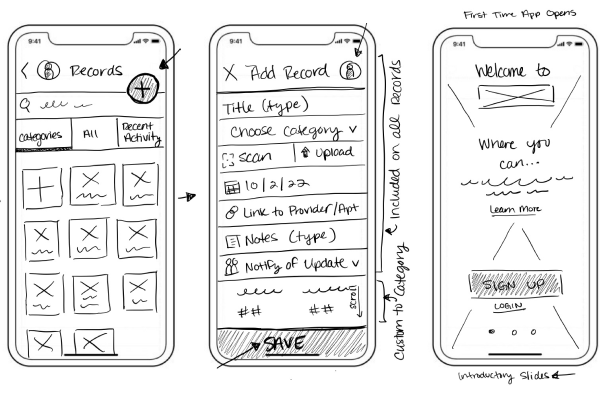 9:41
Records
+
Categories
All
Recent
Activity
9:41
X Add Record
Title (type)
Choose category v
Scan
Upload
10/2/22
Link to Provider/Apt
Notes (type)
Notify of Update v
##
##
scroll
SAVE
Included on all records
Custom to Category
First Time App Opens
9:41
Welcome to
Where you
can...
Learn More
SIGN UP
LOGIN
Introductory Slides